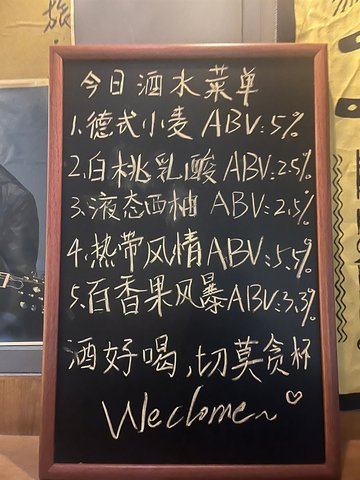 今日酒水菜单
1.德式小麦 ABV:5%
2.白桃乳酸 ABV:2.5%
3.液态西柚 ABV:2.5%
4.热带风情 ABV:5.5%
5.百香果风暴 ABV:3.3%
酒好喝,切莫贪杯
Weclome~♡
旅